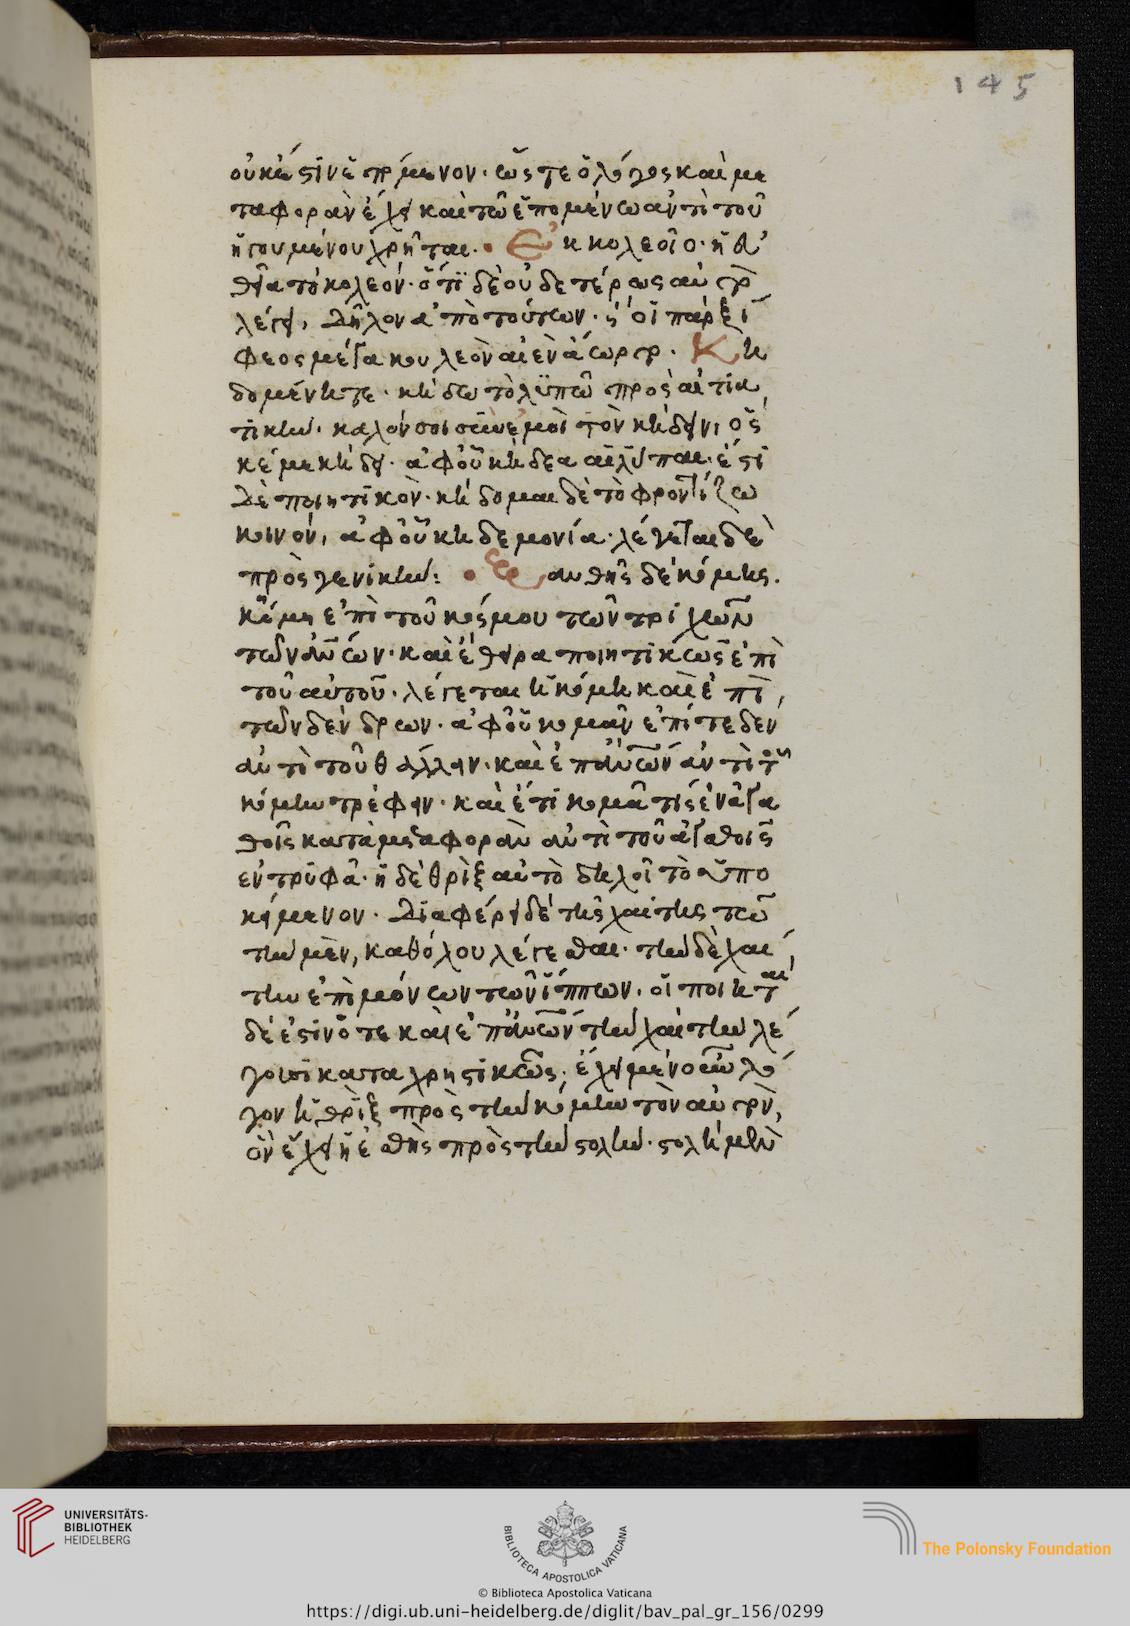 145
οὐκέστιν ἑπόμενον· ὥστε ὁ λόγος καὶ με
ταφορὰν ἔχει καὶ τῶ ἑπομένω ἀντὶ τοῦ
ἡγουμένου χρῆται. Ἐκ κολεοῖο· ἡ εὐ
θεῖα τὸ κολεόν. ὅτι δὲ οὐδετέρως αὐτὸ
λέγει, δῆλον ἀπὸ τούτων· ἥ οἱ πὰρ ξί
φεος μέγα κουλεὸν αἰὲν ἄωρτο. Κη
δομένη τε· κήδω τὸ λυπῶ πρὸς αἰτια
τικήν· καλόν σοι σὺν ἐμοὶ τὸν κήδειν, ὅς
κέ με κήδει· ἀφοῦ κήδεα αἱ λύπαι· ἔστι
δὲ ποιητικὸν· κήδομαι δὲ τὸ φροντίζω
κοινόν, ἀφοῦ κηδεμονία· λέγεται δὲ
πρὸς γενικήν: ξανθῆς δὲ κόμης.
κόμη ἐπὶ τοῦ κόσμου τῶν τριχῶν
τῶν ἀνῶν· καὶ ἔθειρα ποιητικῶς ἐπὶ
τοῦ αὐτοῦ. λέγεται ἡ κόμη καὶ ἐπὶ
τῶν δένδρων· ἀφοῦ κομᾶν ἐπί τε δέν
ἀντὶ τοῦ θάλλειν· καὶ ἐπ ἀνῶν ἀντὶ τοῦ
κόμην τρέφειν· καὶ ἔτι κομᾶ τίς ἐν ἀγα
θοῖς κατὰ μεταφορὰν ἀντὶ τοῦ ἀγαθοῖς
ἐντρυφᾶ· ἡ δὲ θρὶξ αὐτὸ δηλοῖ τὸ ὑπο
κείμενον. Διαφέρει δὲ τῆς χαίτης τῶ
τὴν μὲν, καθόλου λέγεσθαι· τὴν δὲ χαί
την ἐπὶ μόνων τῶν ἵππων. οἱ ποιηταὶ
δὲ ἔστιν ὅτε καὶ ἐπ ἀνῶν τὴν χαίτην λέ
γουσι καταχρηστικῶς· ἔχει μὲν οὖν λό
γον ἡ θρὶξ πρὸς τὴν κόμην τὸν αὐτὸν,
ὃν ἔχει ἡ ἐσθὴς πρὸς τὴν στολήν· στολὴ μὲν
UNIVERSITÄTS-
BIBLIOTHEK
HEIDELBERG
BIBLIOTECA APOSTOLICA VATICANA
The Polonsky Foundation
© Biblioteca Apostolica Vaticana
https://digi.ub.uni-heidelberg.de/diglit/bav_pal_gr_156/0299